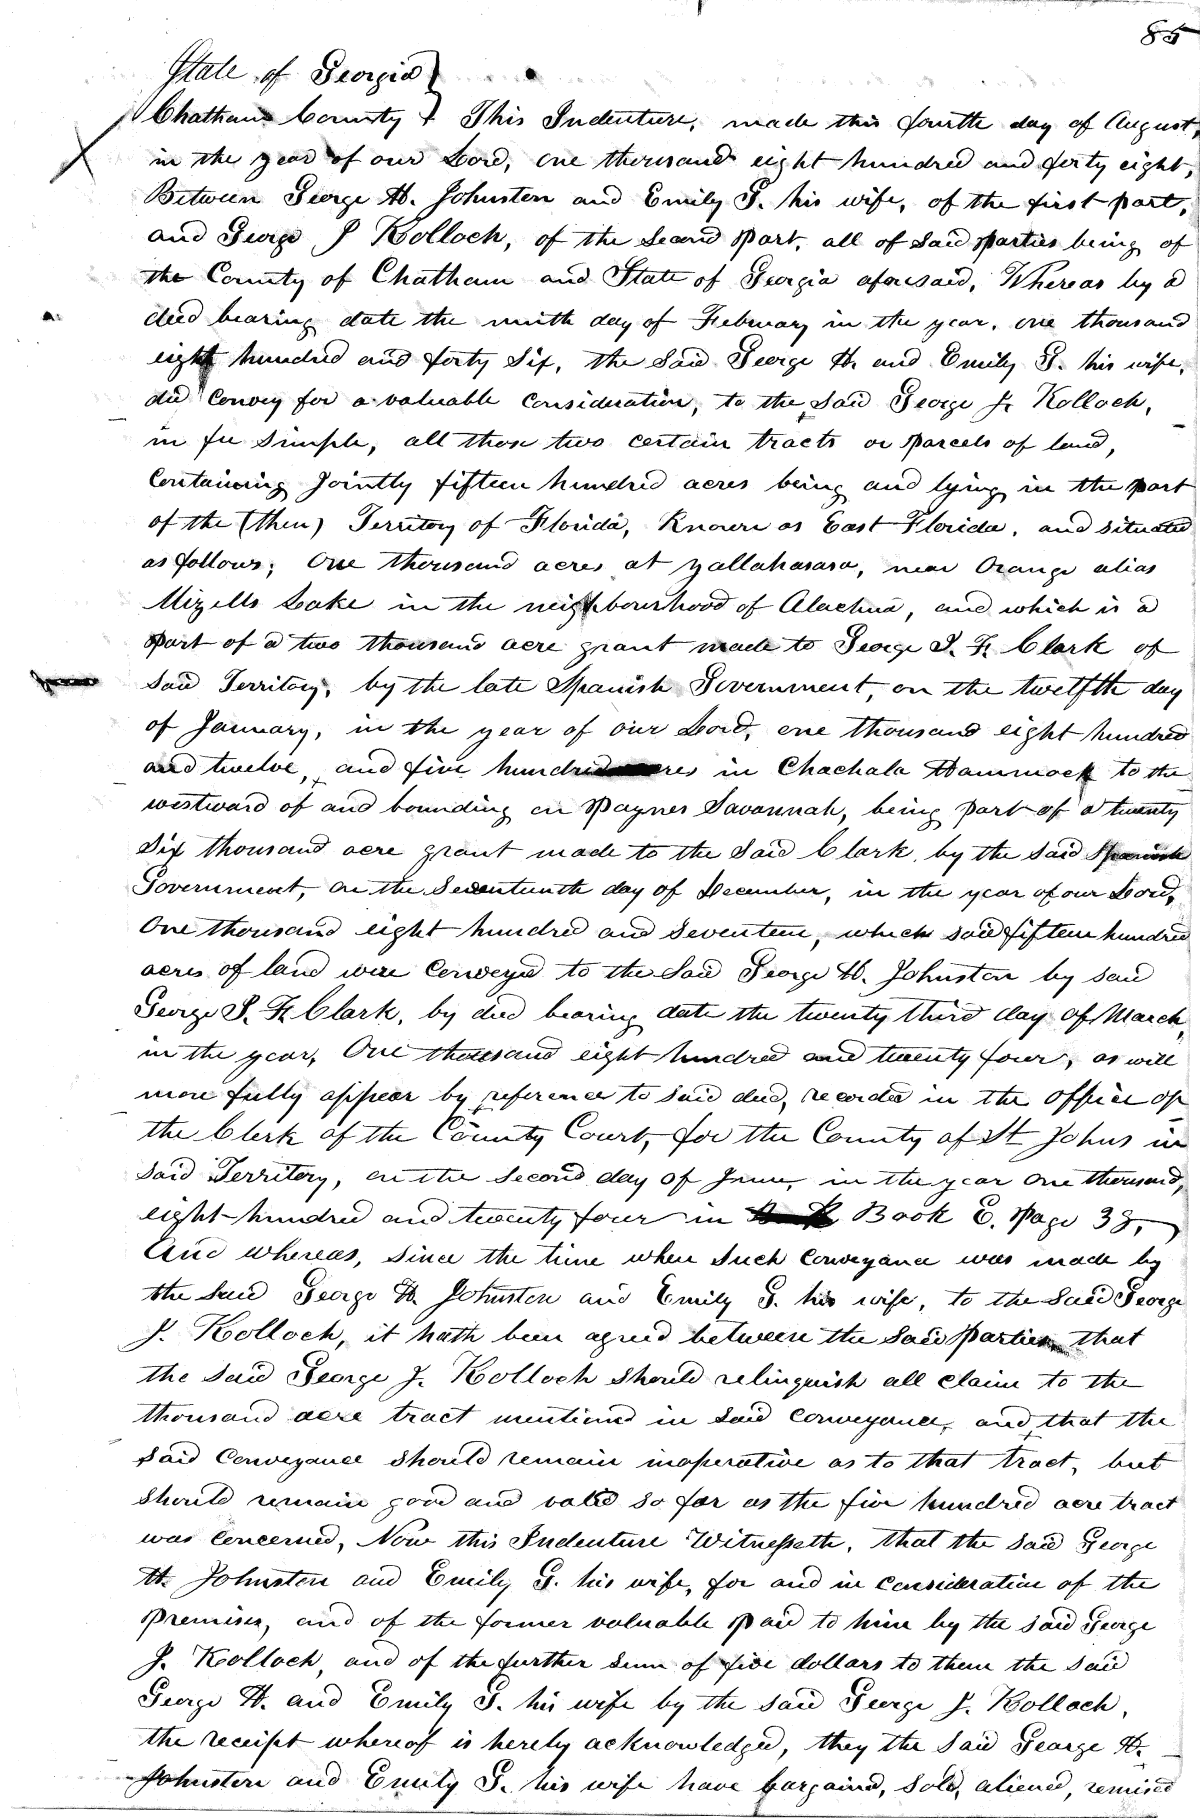 85
State of Georgia }
Chatham County } This Indenture, made this fourth day of August,
in the year of our Lord, one thousand eight hundred and forty eight,
Between George H. Johnston and Emily G. his wife, of the first part,
and George J Kolloch, of the Second part, all of said parties being of
the County of Chatham and State of Georgia aforesaid, Whereas by a
deed bearing date the ninth day of February in the year, one thousand
eight hundred and forty Six, the said George H. and Emily G. his wife,
did Convey for a valuable Consideration, to the said George J. Kolloch,
in fee Simple, all those two certain tracts or parcels of land,
Containing Jointly fifteen hundred acres being and lying in the part
of the (then) Territory of Florida, Known as East Florida, and situated
as follows; One thousand acres at yallahasasa, near Orange alias
Mizells Lake in the neighbourhood of Alachua, and which is a
part of a two thousand acre grant made to George J. F. Clark of
said Territory, by the late Spanish Government, on the twelfth day
of January, in the year of our Lord, one thousand eight hundred
and twelve, and five hundred acres in Chachala Hammock to the
westward of and bounding on Paynes Savannah, being part of a twenty
Six thousand acre grant made to the Said Clark by the said Spanish
Government, on the Seventeenth day of December, in the year of our Lord,
One thousand eight hundred and Seventeen, which said fifteen hundred
acres of land were Conveyed to the Said George H. Johnston by said
George J. F. Clark, by deed bearing date the twenty third day of March,
in the year, One thousand eight hundred and twenty four, as will
more fully appear by reference to said deed, recorded in the office of
the Clerk of the County Court, for the County of St Johns in
said Territory, on the Second day of June, in the year One thousand,
eight hundred and twenty four in Book E. Page 33,
And whereas, since the time when Such Conveyance was made by
the Said George H. Johnston and Emily G. his wife, to the Said George
J. Kolloch, it hath been agreed between the Said Parties that
the said George J. Kolloch Should relinquish all claim to the
thousand acre tract mentioned in Said Conveyance, and that the
said Conveyance should remain inoperative as to that tract, but
should remain good and valid so far as the five hundred acre tract
was concerned, Now this Indenture Witnesseth, that the said George
H. Johnston and Emily G. his wife, for and in consideration of the
premises, and of the former valuable paid to him by the said George
J. Kolloch, and of the further Sum of five dollars to them the said
George H. and Emily G. his wife by the said George J. Kolloch,
the receipt whereof is hereby acknowledged, they the said George H.
Johnston and Emily G. his wife have bargained, Sold, aliened, remised